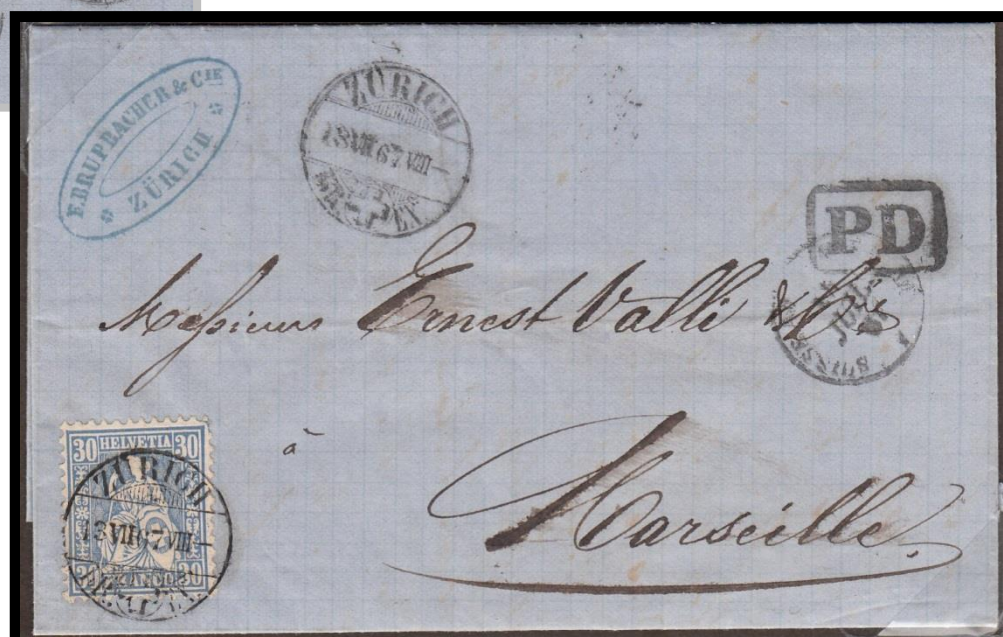 F. BRUPBACHER & CIE
ZÜRICH
ZÜRICH
13 VII 67 VIII –
PD
Messieurs Ernest Valli &
SUISSE
JUIL.
à
Marseille
30 HELVETIA 30
ZÜRICH
13 VII 67 VIII –
30 FRANCO 30